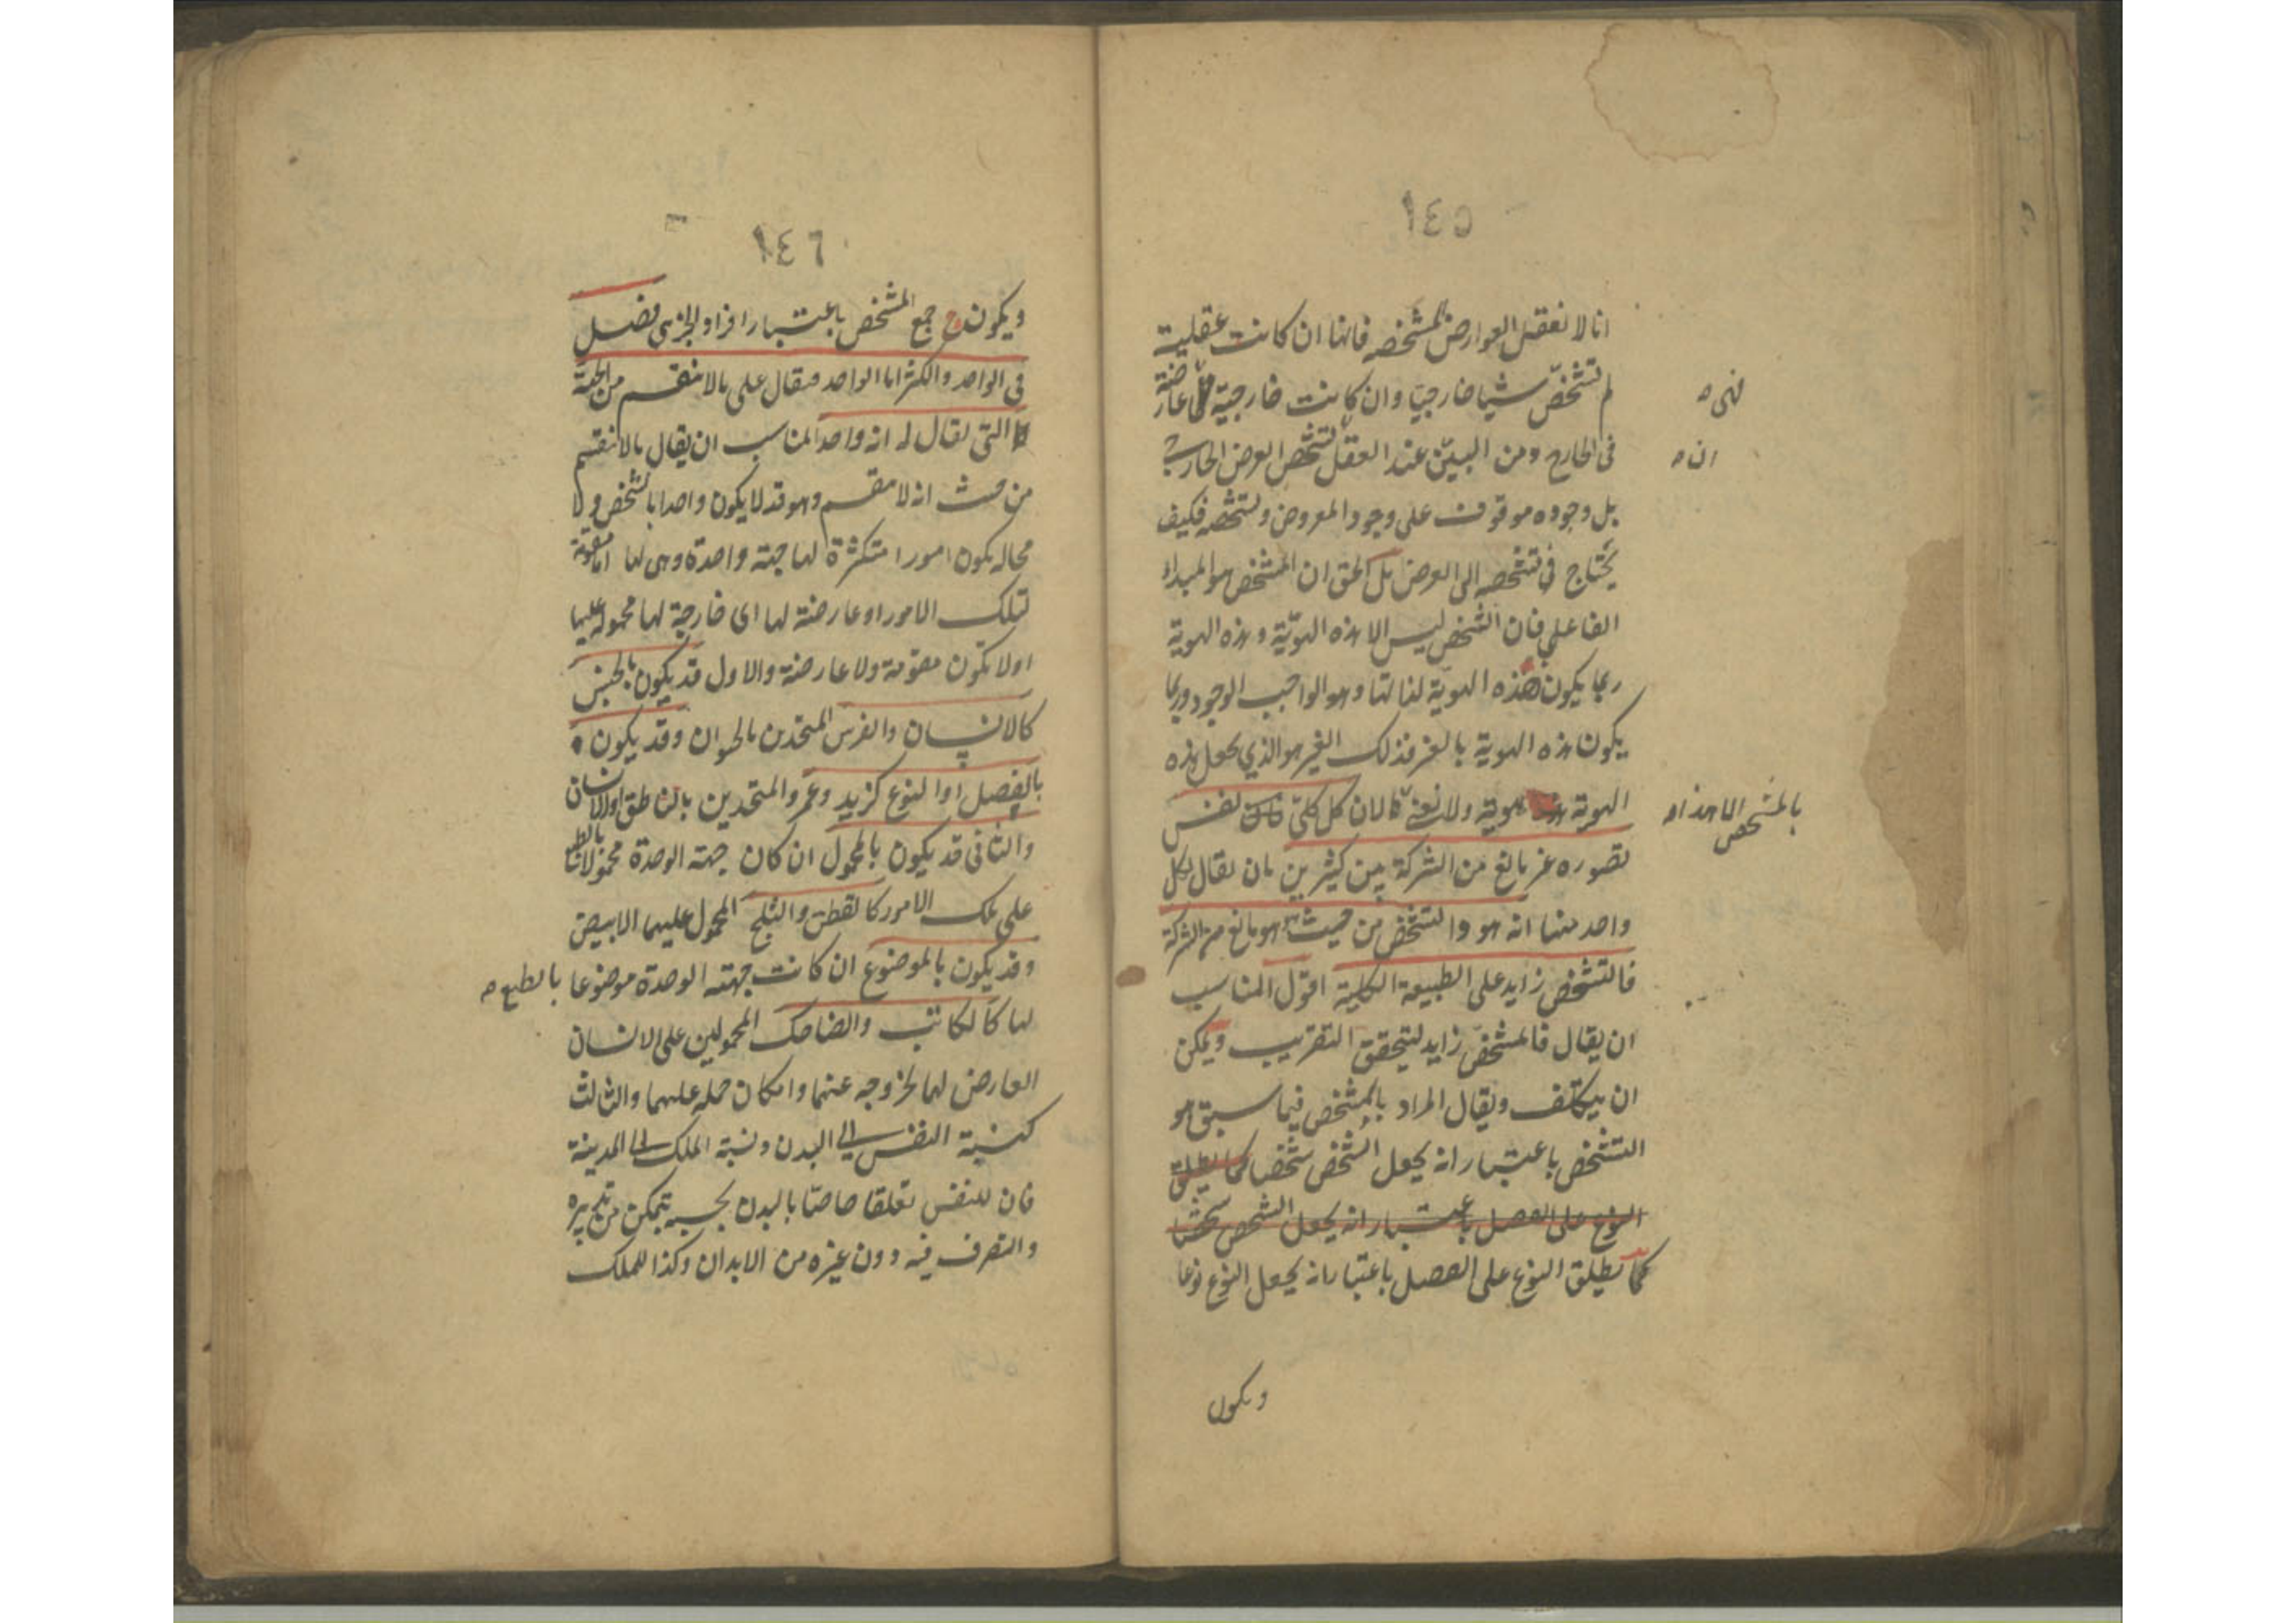 ١٤٥
انا لا نعقل العوارض المشخصه فانها ان كانت عقلية
لم تشخص شيا خارجيا وان كانت خارجية عارضة
فهى
فى الخارج ومن البين عند العقل تشخص العرض الخارجى
ان
بل وجوده موقوف على وجود المعروض وتشخصه فكيف
يحتاج فى تشخصه الى العرض بل الحق ان المشخص هو المبداء
الفاعلى فان الشخص ليس الا هذه الهوية وهذه الهوية
ربما يكون هذه الهوية لذاتها وهو الواجب الوجود وربما
يكون هذه الهوية بالغير فذلك الغير هو الذي يجعل هذه
الهوية هوية ولا نعنى لان كل كلى فان نفس
بالمشخص الا هذا
تصوره غير مانع من الشركة بين كثيرين بان يقال لكل
واحد منها انه هو والتشخص من حيث هو مانع من الشركة
فالتشخص زايد على الطبيعة الكلية اقول المناسب
ان يقال فالمشخص زايد لتيحقق التقريب ويمكن
ان يتكلف ويقال المراد بالمشخص فيما سبق هو
التشخص باعتبار انه يجعل الشخص شخصا كما يطلق
النوع على الفصل باعتبار انه يجعل الشخص شخصا
كما يطلق النوع على الفصل باعتبار انه يجعل النوع نوعا
ويكون
١٤٦
ويكون ح جمع المشخص باعتبار افراد الجزى فصل
فى الواحد والكثير اما الواحد فيقال على مالا ينقسم من الجهة
التى يقال له انه واحد المناسب ان يقال مالا ينقسم
من حيث انه لا ينقسم وهو قد لا يكون واحدا بالشخص ولا
محاله يكون امورا متكثرة لها جهة واحدة وهى لها اما مقومة
لتلك الامور او عارضة لها اى خارجة لها محمولة عليها
او لا يكون مقومة ولا عارضة والاول قد يكون بالجنس
كالانسان والفرس المتحدين بالحيوان وقد يكون
بالفصل او النوع كزيد وعمرو المتحدين بالناطق او الانسان
والثانى قد يكون بالمحمول ان كان جهة الوحدة محمولا بالطبع
على تلك الامور كالقطن والثلج المحمول عليهما الابيض
وقد يكون بالموضوع ان كانت جهته الوحدة موضوعا بالطبع
لها كالكاتب والضاحك المحمولين على الانسان
العارض لهما لخروجه عنهما وامكان حمله عليهما والثالث
كنسبة النفس الى البدن ونسبة الملك الى المدينة
فان للنفس تعلقا خاصا بالبدن بحسبه تتمكن من تدبيره
والتصرف فيه دون غيره من الابدان وكذا للملك